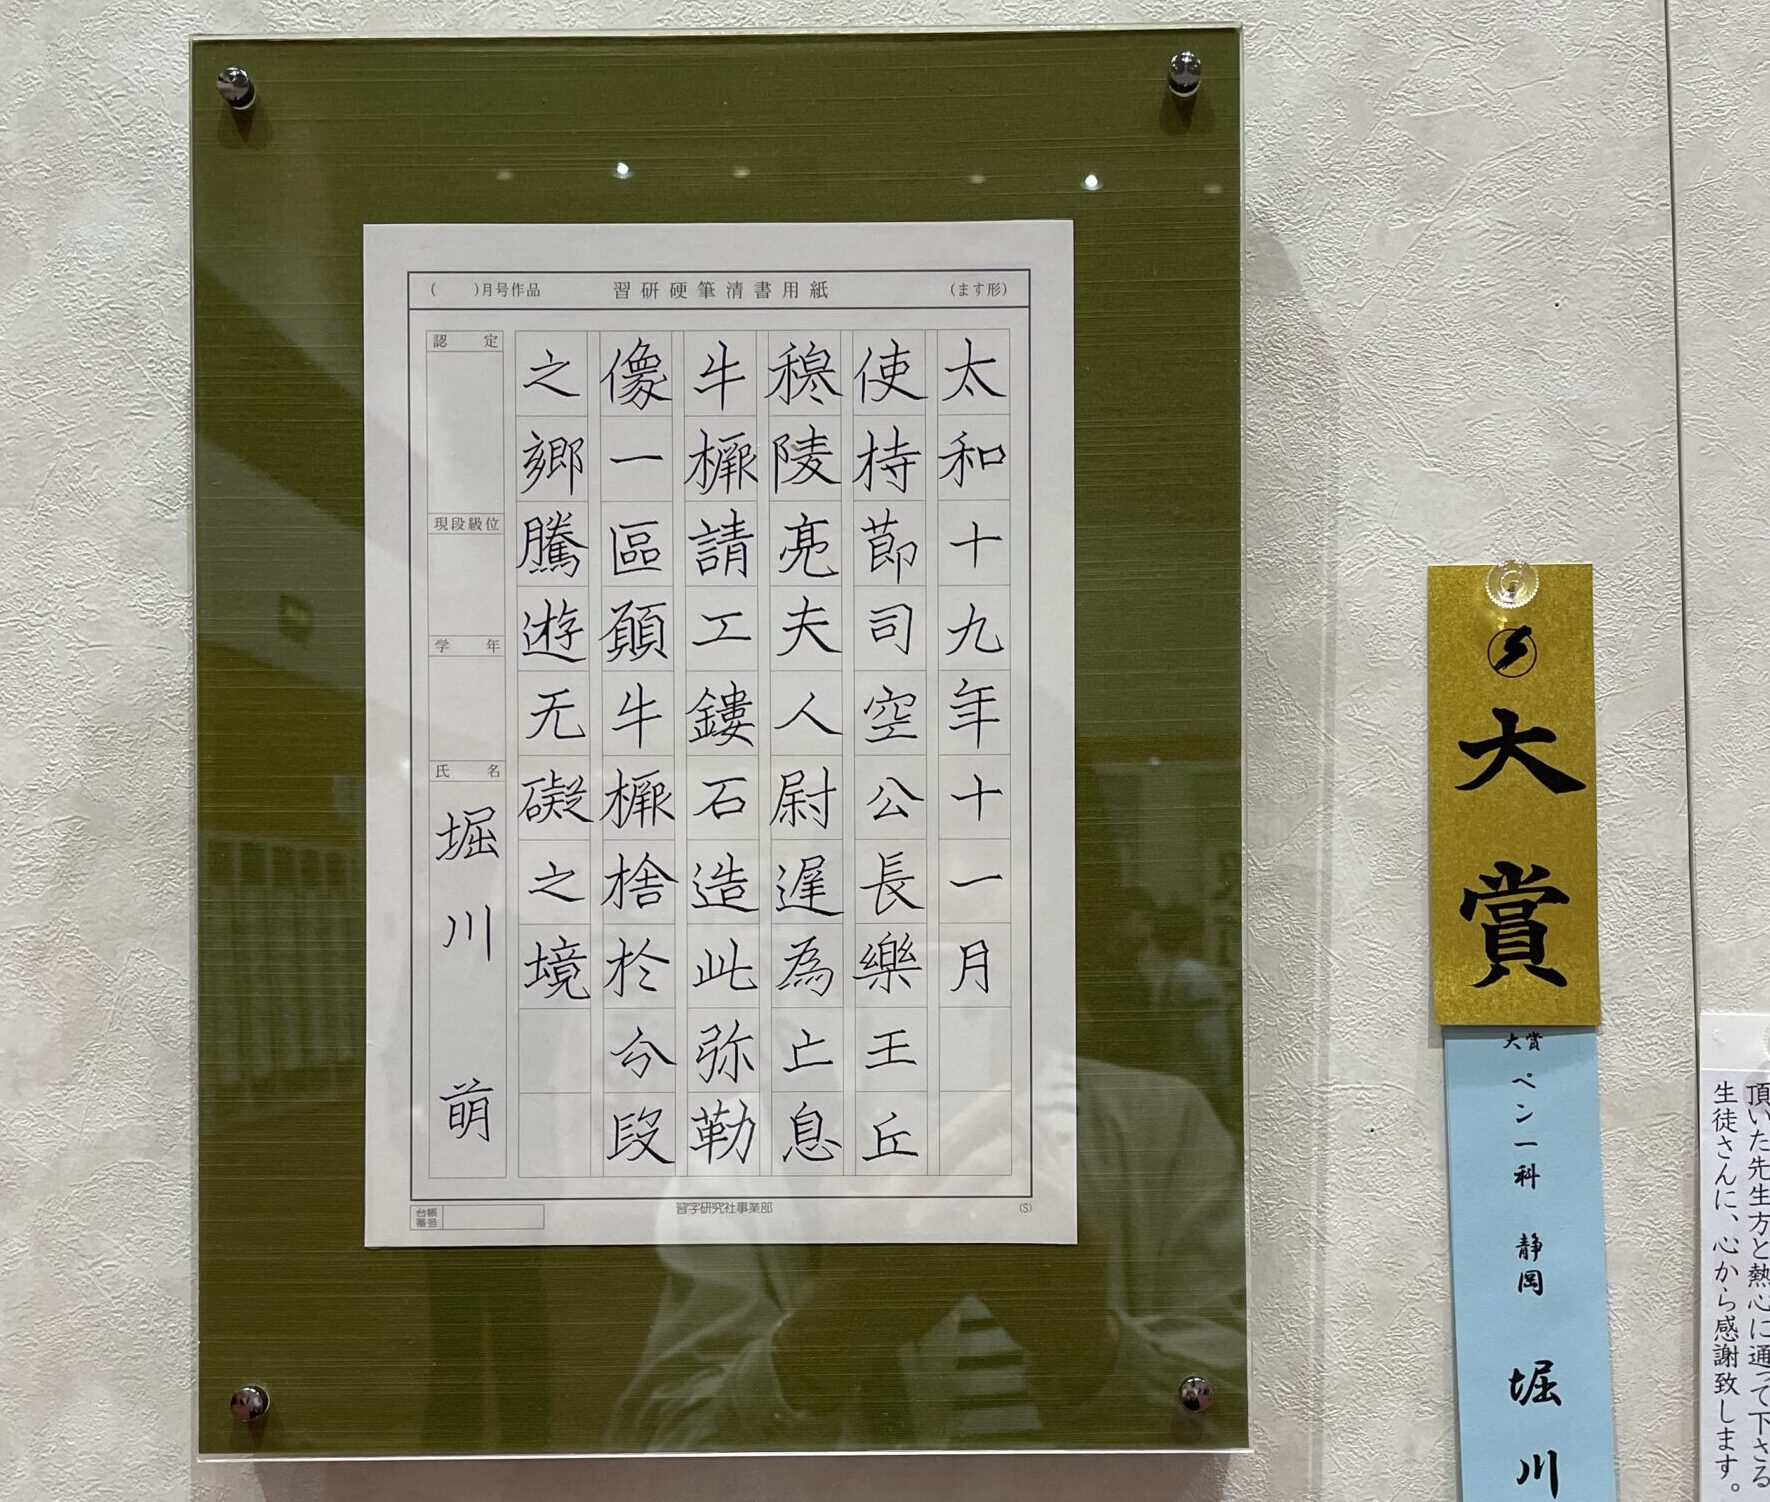 ( )月号作品 習研硬筆清書用紙 (ます形)
太和十九年十一月
使持節司空公長樂王丘
穆陵亮夫人尉遲為亡息
牛橛請工鏤石造此弥勒
像一區願牛橛捨於分段
之郷騰遊无礙之境
認定
現段級位
学年
氏名
堀川 萌
台帳番号
習字研究社事業部
(S)
大賞
大賞 ペン一科 静岡 堀川
頂いた先生方と熱心に通って下さる
生徒さんに、心から感謝致します。